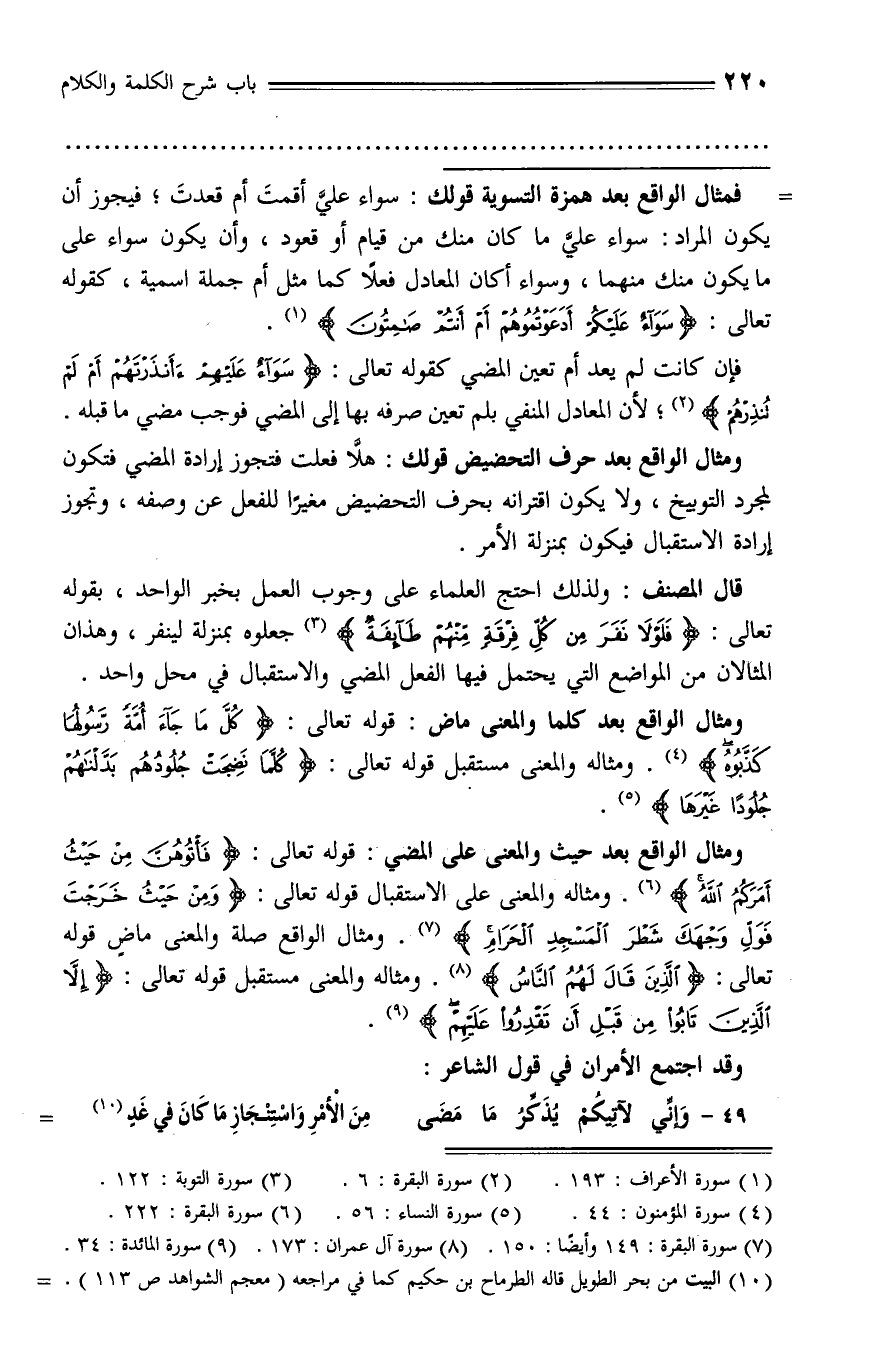 ٢٢٠ باب شرح الكلمة والكلام
= فمثال الواقع بعد همزة التسوية قولك : سواء عليَّ أقمتَ أم قعدتَ ؛ فيجوز أن
يكون المراد : سواء عليَّ ما كان منك من قيام أو قعود ، وأن يكون سواء على
ما يكون منك منهما ، وسواء أكان المعادل فعلًا كما مثل أم جملة اسمية ، كقوله
تعالى : ﴿ سَوَآءٌ عَلَيْكُمْ أَدَعَوْتُمُوهُمْ أَمْ أَنتُمْ صَٰمِتُونَ ﴾ (١) .
فإن كانت لم يعد أم تعين المضي كقوله تعالى : ﴿ سَوَآءٌ عَلَيْهِمْ ءَأَنذَرْتَهُمْ أَمْ لَمْ
تُنذِرْهُمْ ﴾ (٢) ؛ لأن المعادل المنفي بلم تعين صرفه بها إلى المضي فوجب مضي ما قبله .
ومثال الواقع بعد حرف التحضيض قولك : هلَّا فعلت فتجوز إرادة المضي فتكون
لمجرد التوبيخ ، ولا يكون اقترانه بحرف التحضيض مغيرًا للفعل عن وصفه ، وتجوز
إرادة الاستقبال فيكون بمنزلة الأمر .
قال المصنف : ولذلك احتج العلماء على وجوب العمل بخبر الواحد ، بقوله
تعالى : ﴿ فَلَوْلَا نَفَرَ مِن كُلِّ فِرْقَةٍ مِّنْهُمْ طَآئِفَةٌ ﴾ (٣) جعلوه بمنزلة لينفر ، وهذان
المثالان من المواضع التي يحتمل فيها الفعل المضي والاستقبال في محل واحد .
ومثال الواقع بعد كلما والمعنى ماض : قوله تعالى : ﴿ كُلَّ مَا جَآءَ أُمَّةً رَّسُولُهَا
كَذَّبُوهُ ﴾ (٤) . ومثاله والمعنى مستقبل قوله تعالى : ﴿ كُلَّمَا نَضِجَتْ جُلُودُهُم بَدَّلْنَٰهُمْ
جُلُودًا غَيْرَهَا ﴾ (٥) .
ومثال الواقع بعد حيث والمعنى على المضي : قوله تعالى : ﴿ فَأْتُوهُنَّ مِنْ حَيْثُ
أَمَرَكُمُ ٱللَّهُ ﴾ (٦) . ومثاله والمعنى على الاستقبال قوله تعالى : ﴿ وَمِنْ حَيْثُ خَرَجْتَ
فَوَلِّ وَجْهَكَ شَطْرَ ٱلْمَسْجِدِ ٱلْحَرَامِ ﴾ (٧) . ومثال الواقع صلة والمعنى ماضٍ قوله
تعالى : ﴿ ٱلَّذِينَ قَالَ لَهُمُ ٱلنَّاسُ ﴾ (٨) . ومثاله والمعنى مستقبل قوله تعالى : ﴿ إِلَّا
ٱلَّذِينَ تَابُوا۟ مِن قَبْلِ أَن تَقْدِرُوا۟ عَلَيْهِمْ ﴾ (٩) .
وقد اجتمع الأمران في قول الشاعر :
٤٩ - وَإِنِّي لَآتِيكُمْ يُذَكِّرُ مَا مَضَى مِنَ الْأَمْرِ وَاسْتِنْجَازِ مَا كَانَ فِي غَدِ (١٠) =
(١) سورة الأعراف : ١٩٣ . (٢) سورة البقرة : ٦ . (٣) سورة التوبة : ١٢٢ .
(٤) سورة المؤمنون : ٤٤ . (٥) سورة النساء : ٥٦ . (٦) سورة البقرة : ٢٢٢ .
(٧) سورة البقرة : ١٤٩ وأيضًا : ١٥٠ . (٨) سورة آل عمران : ١٧٣ . (٩) سورة المائدة : ٣٤ .
(١٠) البيت من بحر الطويل قاله الطرماح بن حكيم كما في مراجعه ( معجم الشواهد ص ١١٣ ) . =